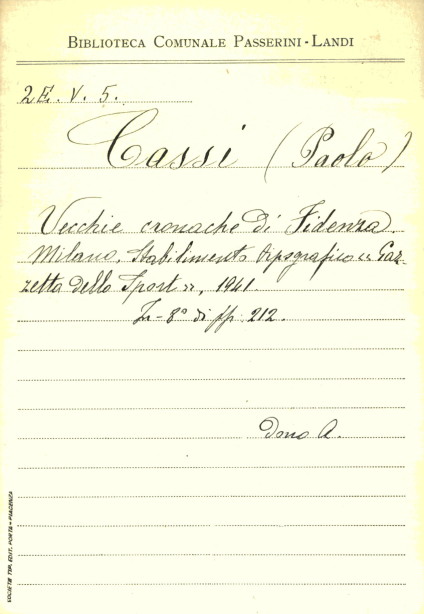 BIBLIOTECA COMUNALE PASSERINI-LANDI
2E. V. 5.
Cassi (Paolo)
Vecchie cronache di Fidenza.
Milano, Stabilimento tipografico "Gaz-
zetta dello Sport", 1941.
In-8° di pp. 212.
Dono A.
SOCIETÀ TIP. EDIT. PORTA - PIACENZA